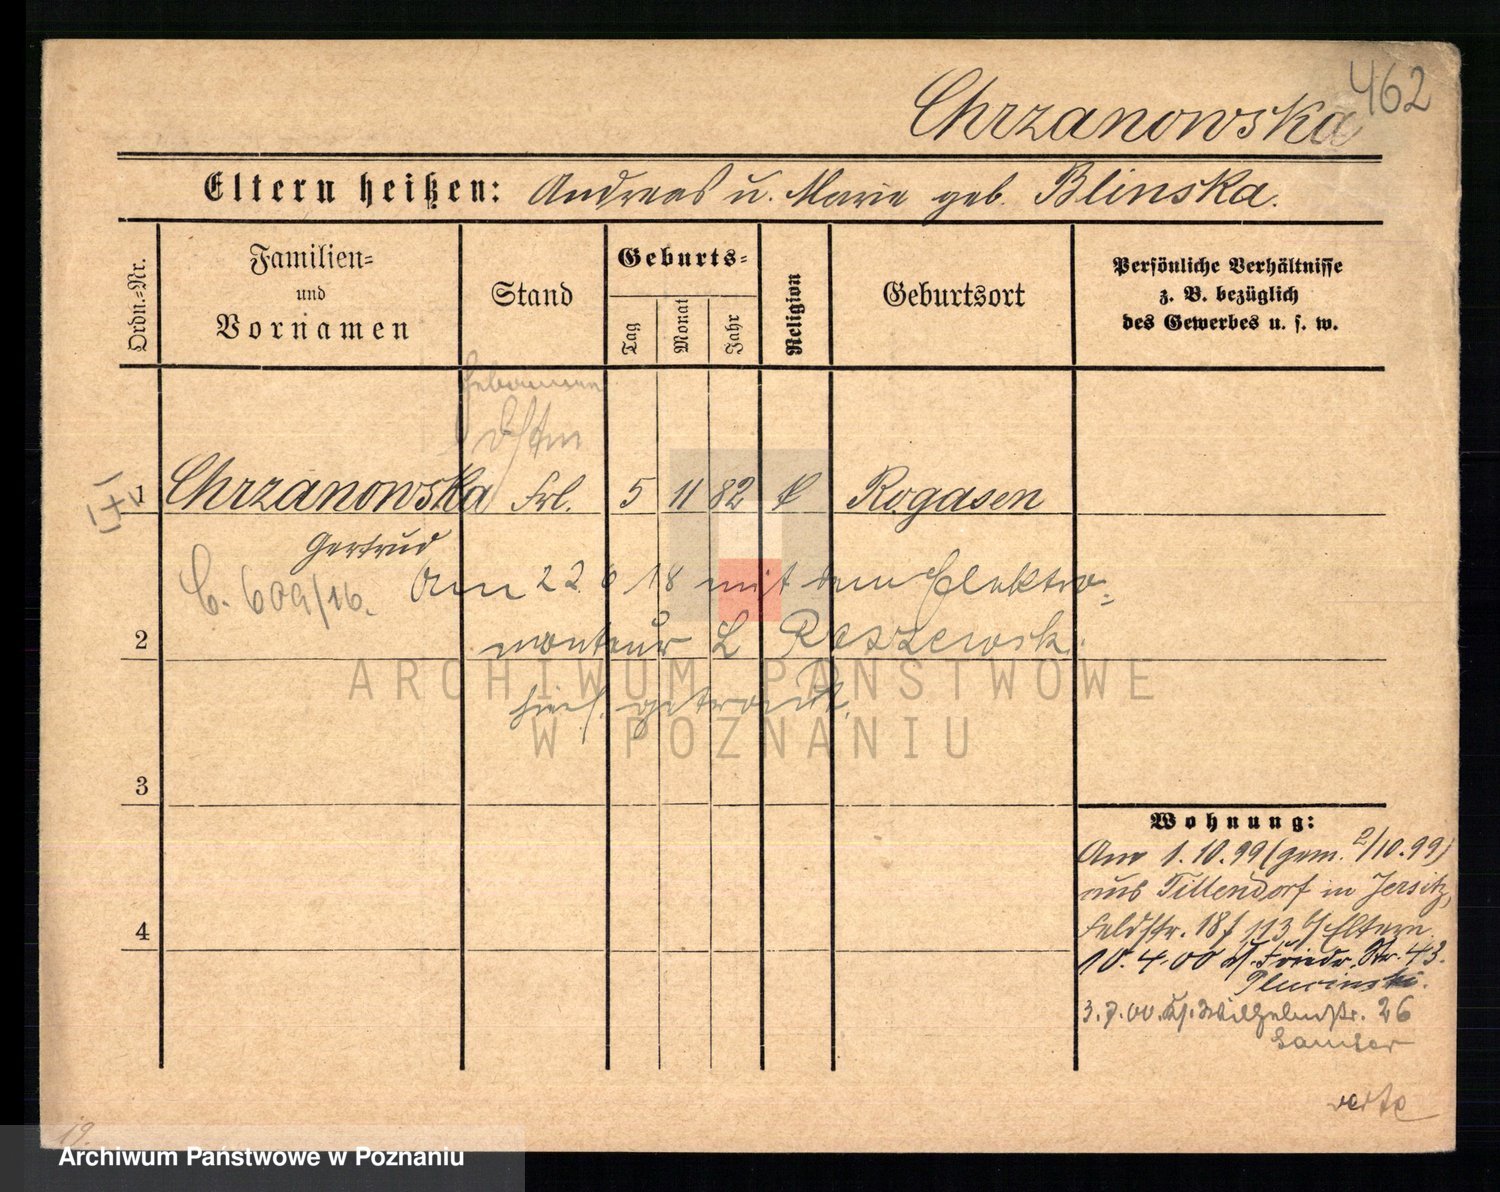 462
Chrzanowska
Eltern heißen: Andreas u. Marie geb. Blinska.
Ordn.-Nr.
Familien-
und
Vornamen
Stand
Geburts-
Tag
Monat
Jahr
Religion
Geburtsort
Persönliche Verhältnisse
z. B. bezüglich
des Gewerbes u. s. w.
1 Chrzanowska Frl. 5 11 82 k Rogasen
Gertrud
C. 609/16.
Am 22 6 18 mit dem Elektro-
2 monteur L Roszewski
hies. getraut.
3
4
Wohnung:
Am 1.10.99 (gem. 2/10.99)
aus Tillendorf in Jersitz,
Feldstr. 113 b/ Eltern
10.4.00 Friedr. Str. 43.
Plucinski.
3.7.00. Wilhelmstr. 26
Samter
verte
19.
ARCHIWUM PAŃSTWOWE
W POZNANIU
Archiwum Państwowe w Poznaniu